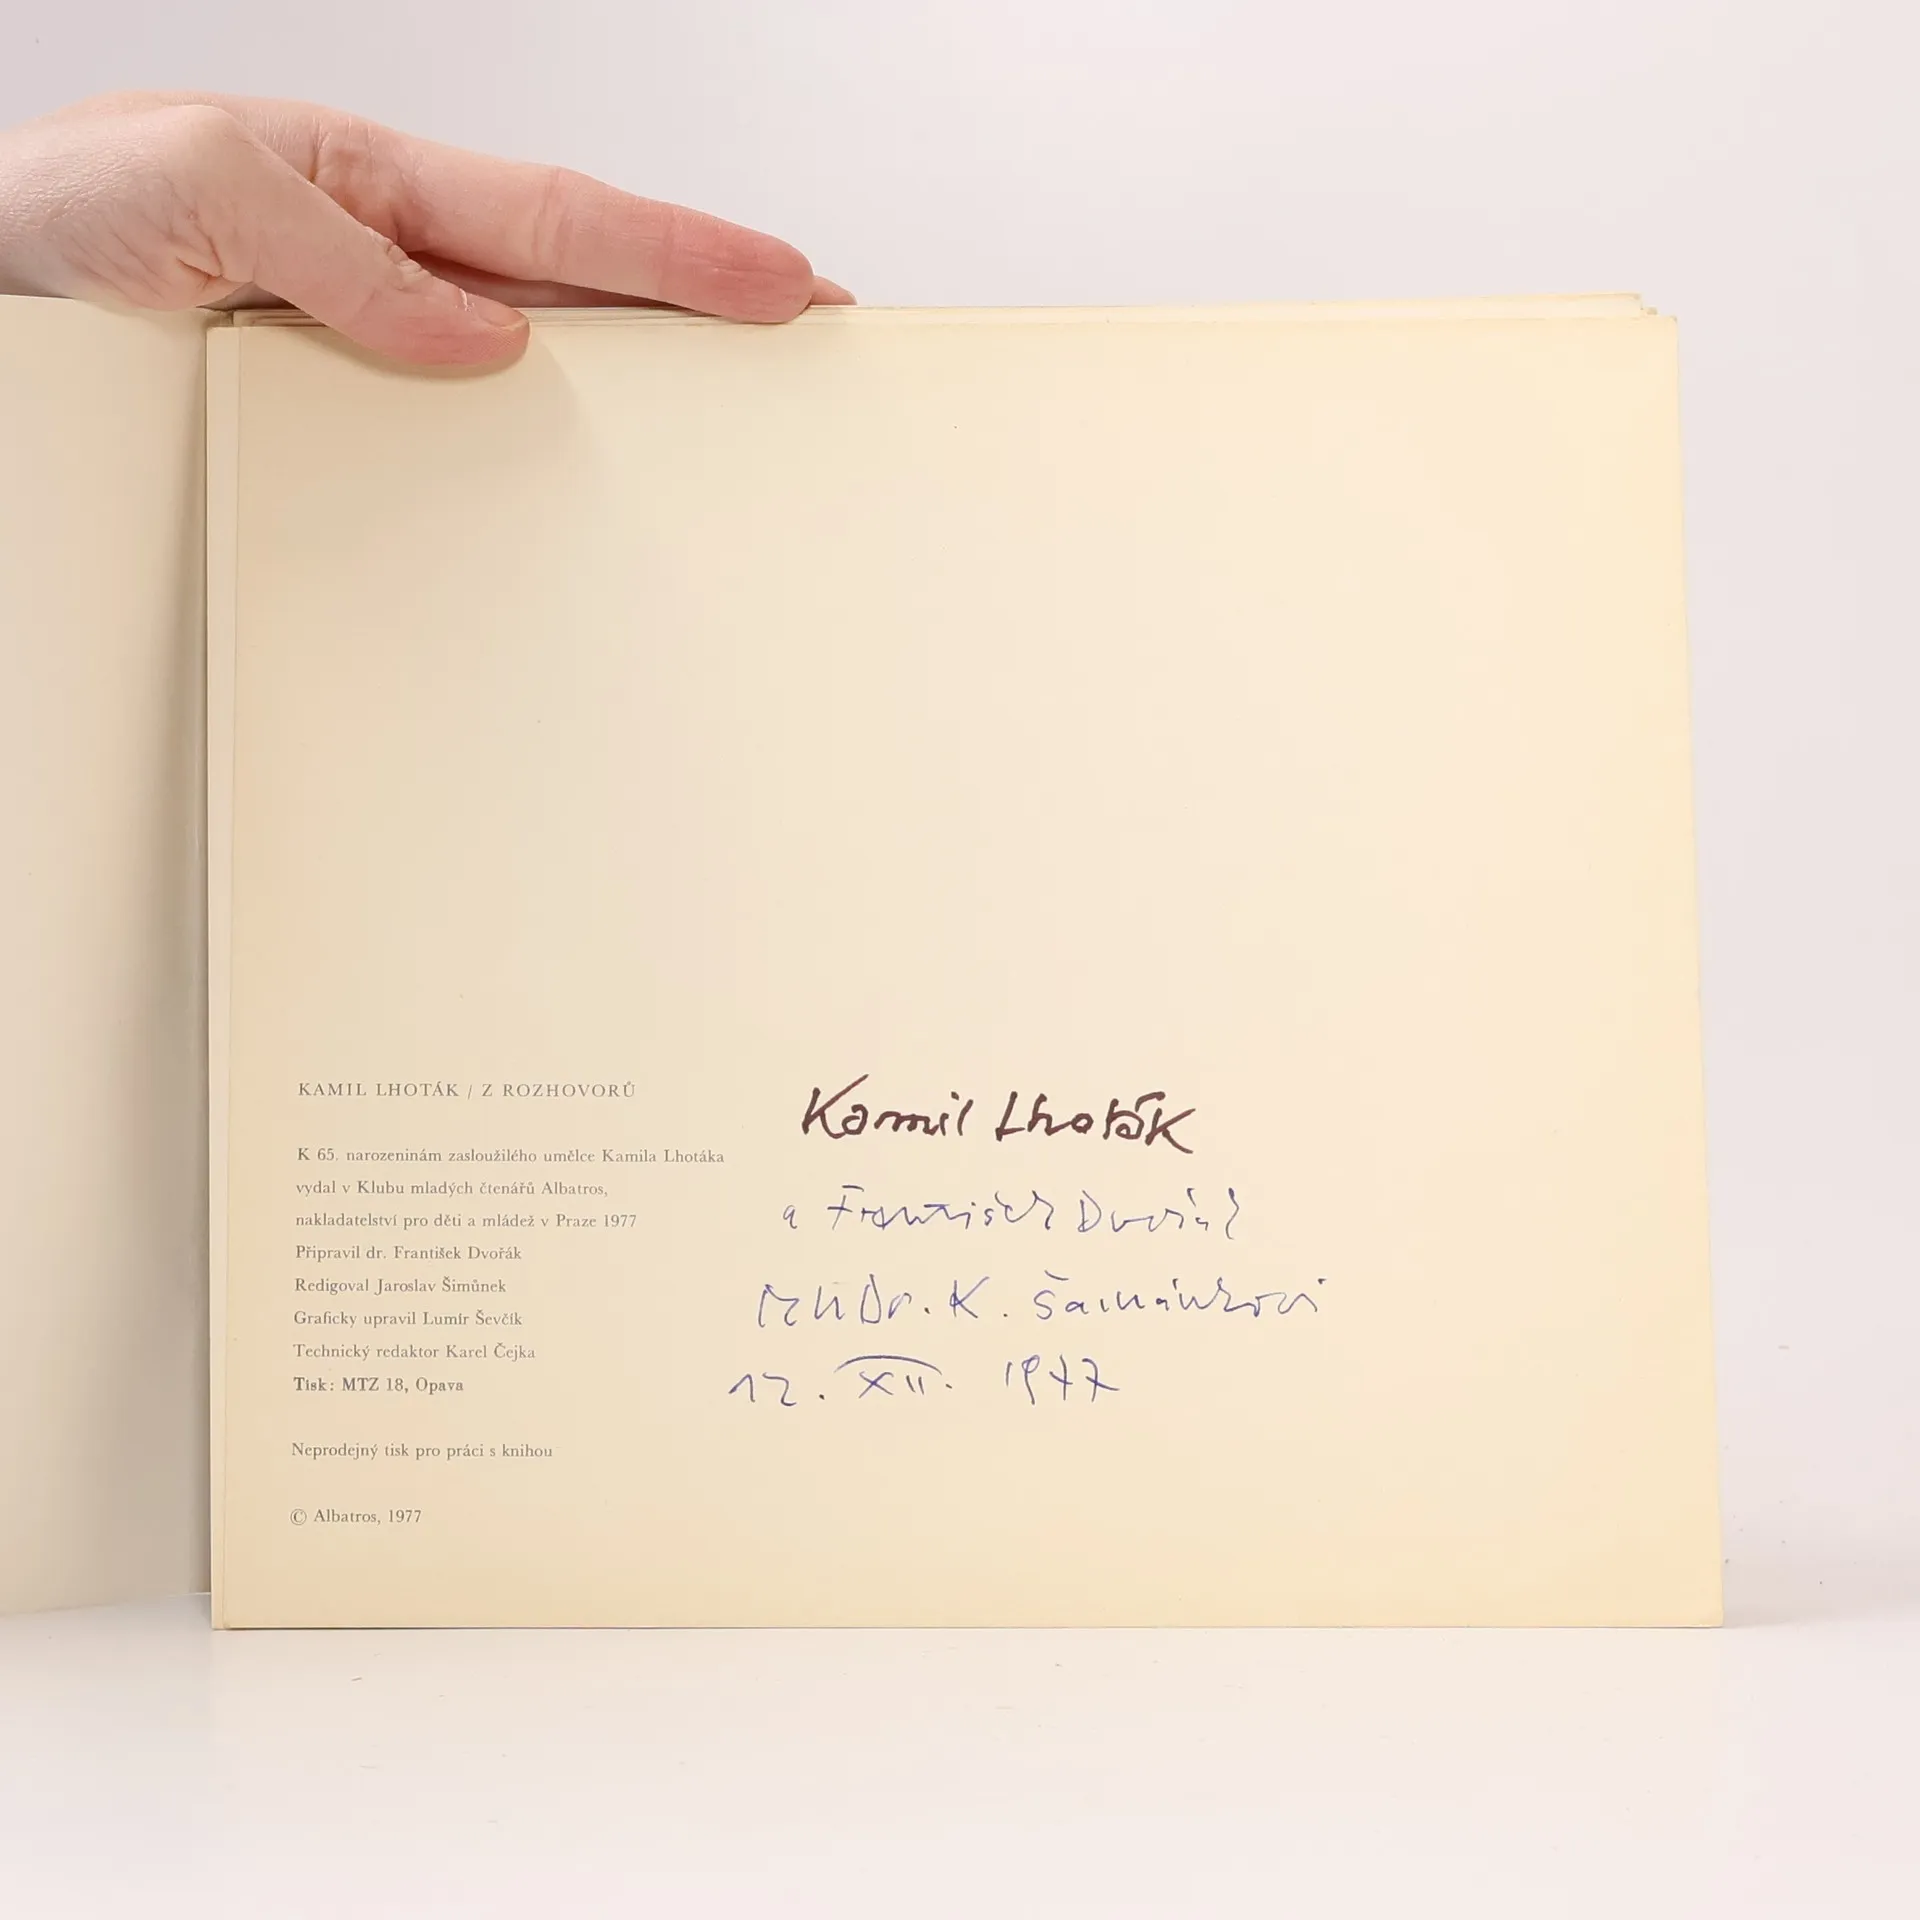 KAMIL LHOTÁK / Z ROZHOVORŮ
K 65. narozeninám zasloužilého umělce Kamila Lhotáka
vydal v Klubu mladých čtenářů Albatros,
nakladatelství pro děti a mládež v Praze 1977
Připravil dr. František Dvořák
Redigoval Jaroslav Šimůnek
Graficky upravil Lumír Ševčík
Technický redaktor Karel Čejka
Tisk: MTZ 18, Opava
Neprodejný tisk pro práci s knihou
© Albatros, 1977
Kamil Lhoták
a František Dvořák
MUDr. K. Šamánkovi
12. XII. 1977